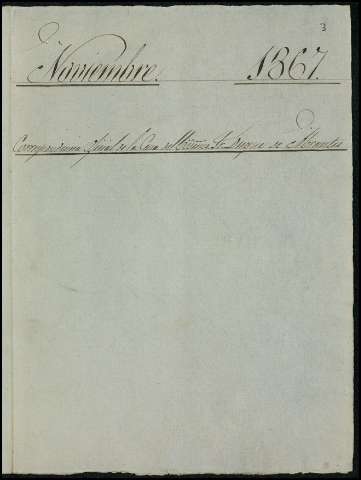 3
Noviembre. 1867.
Correspondencia oficial de la Casa del Excmo. Sr. Duque de Abrantes